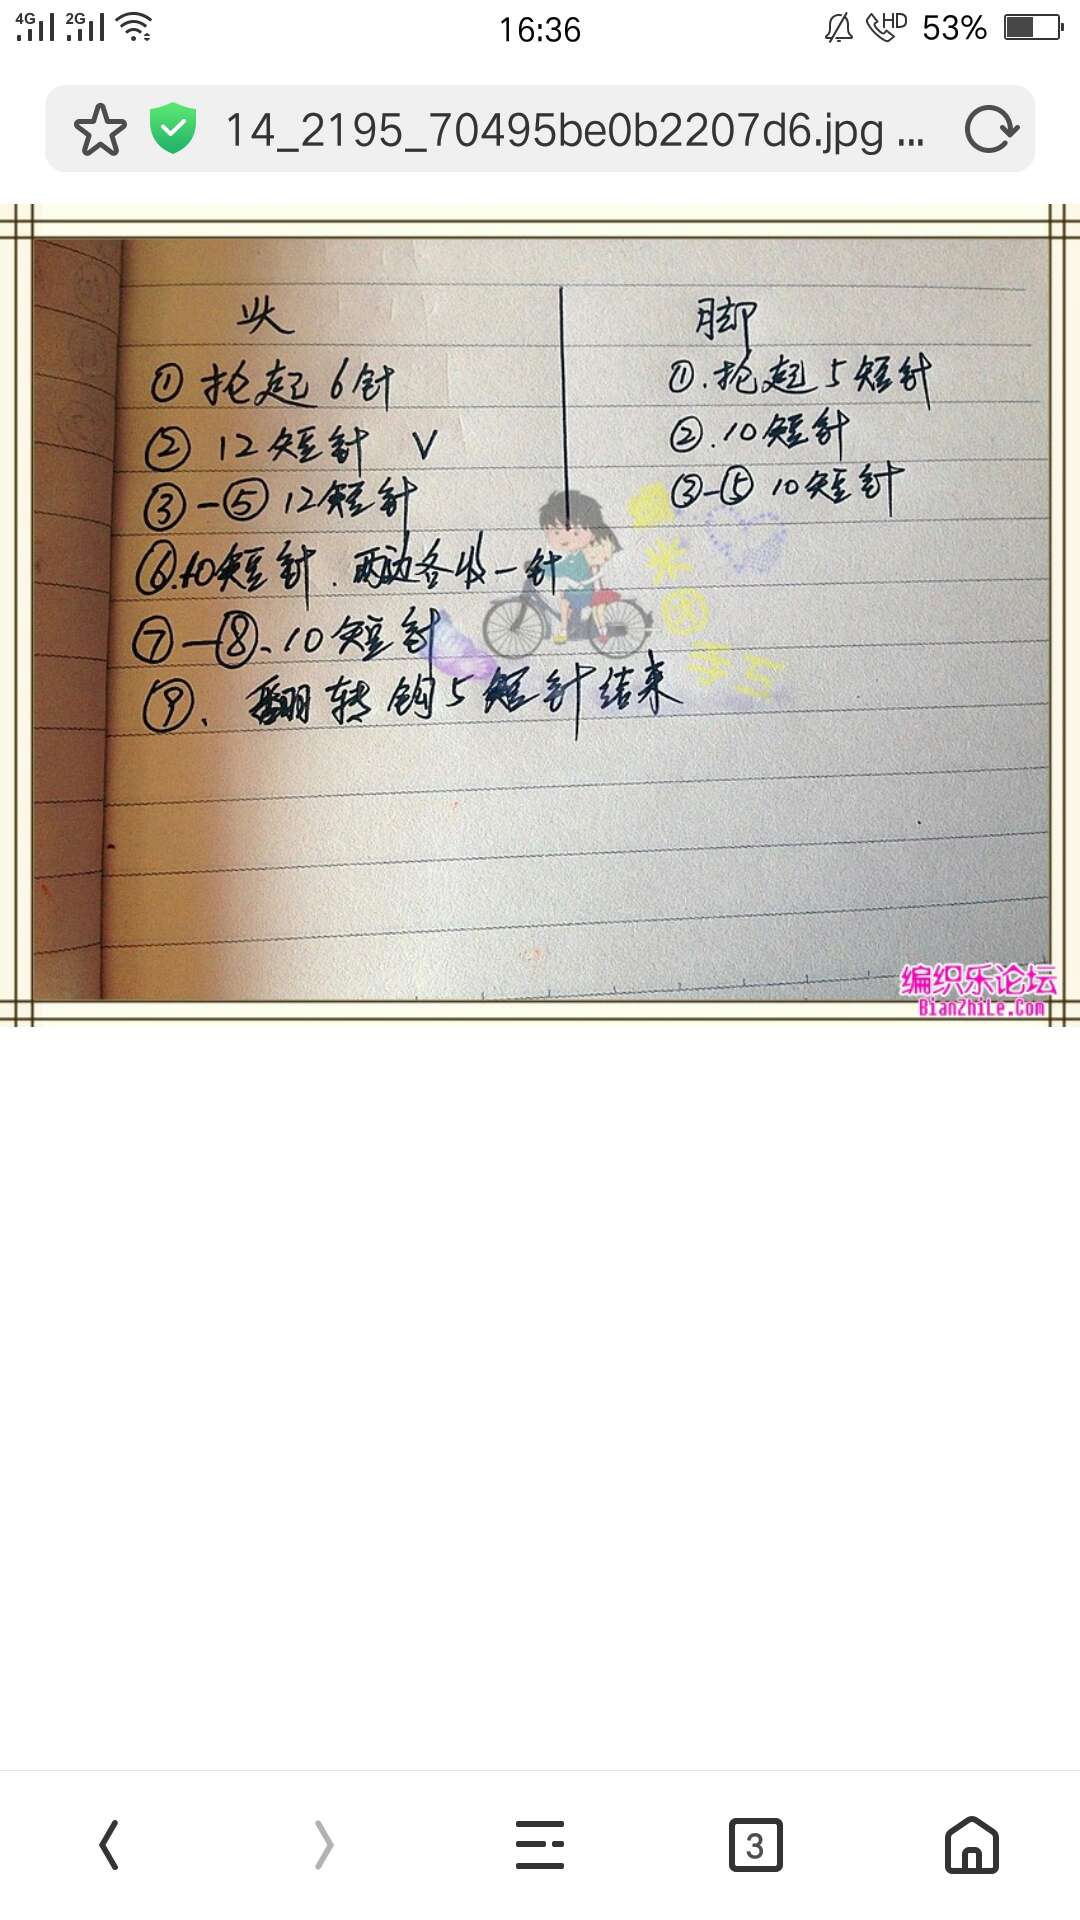 4G 2G 16:36 HD 53%
14_2195_70495be0b2207d6.jpg ...
头
① 抡起6针
② 12短针 V
③-⑤ 12短针
⑥.10短针.两边各收一针
⑦-⑧、10短针
⑨、翻转钩5短针结束
脚
①.抡起5短针
②.10短针
③-⑤ 10短针
手工
编织乐论坛
BianZhiLe.Com
3